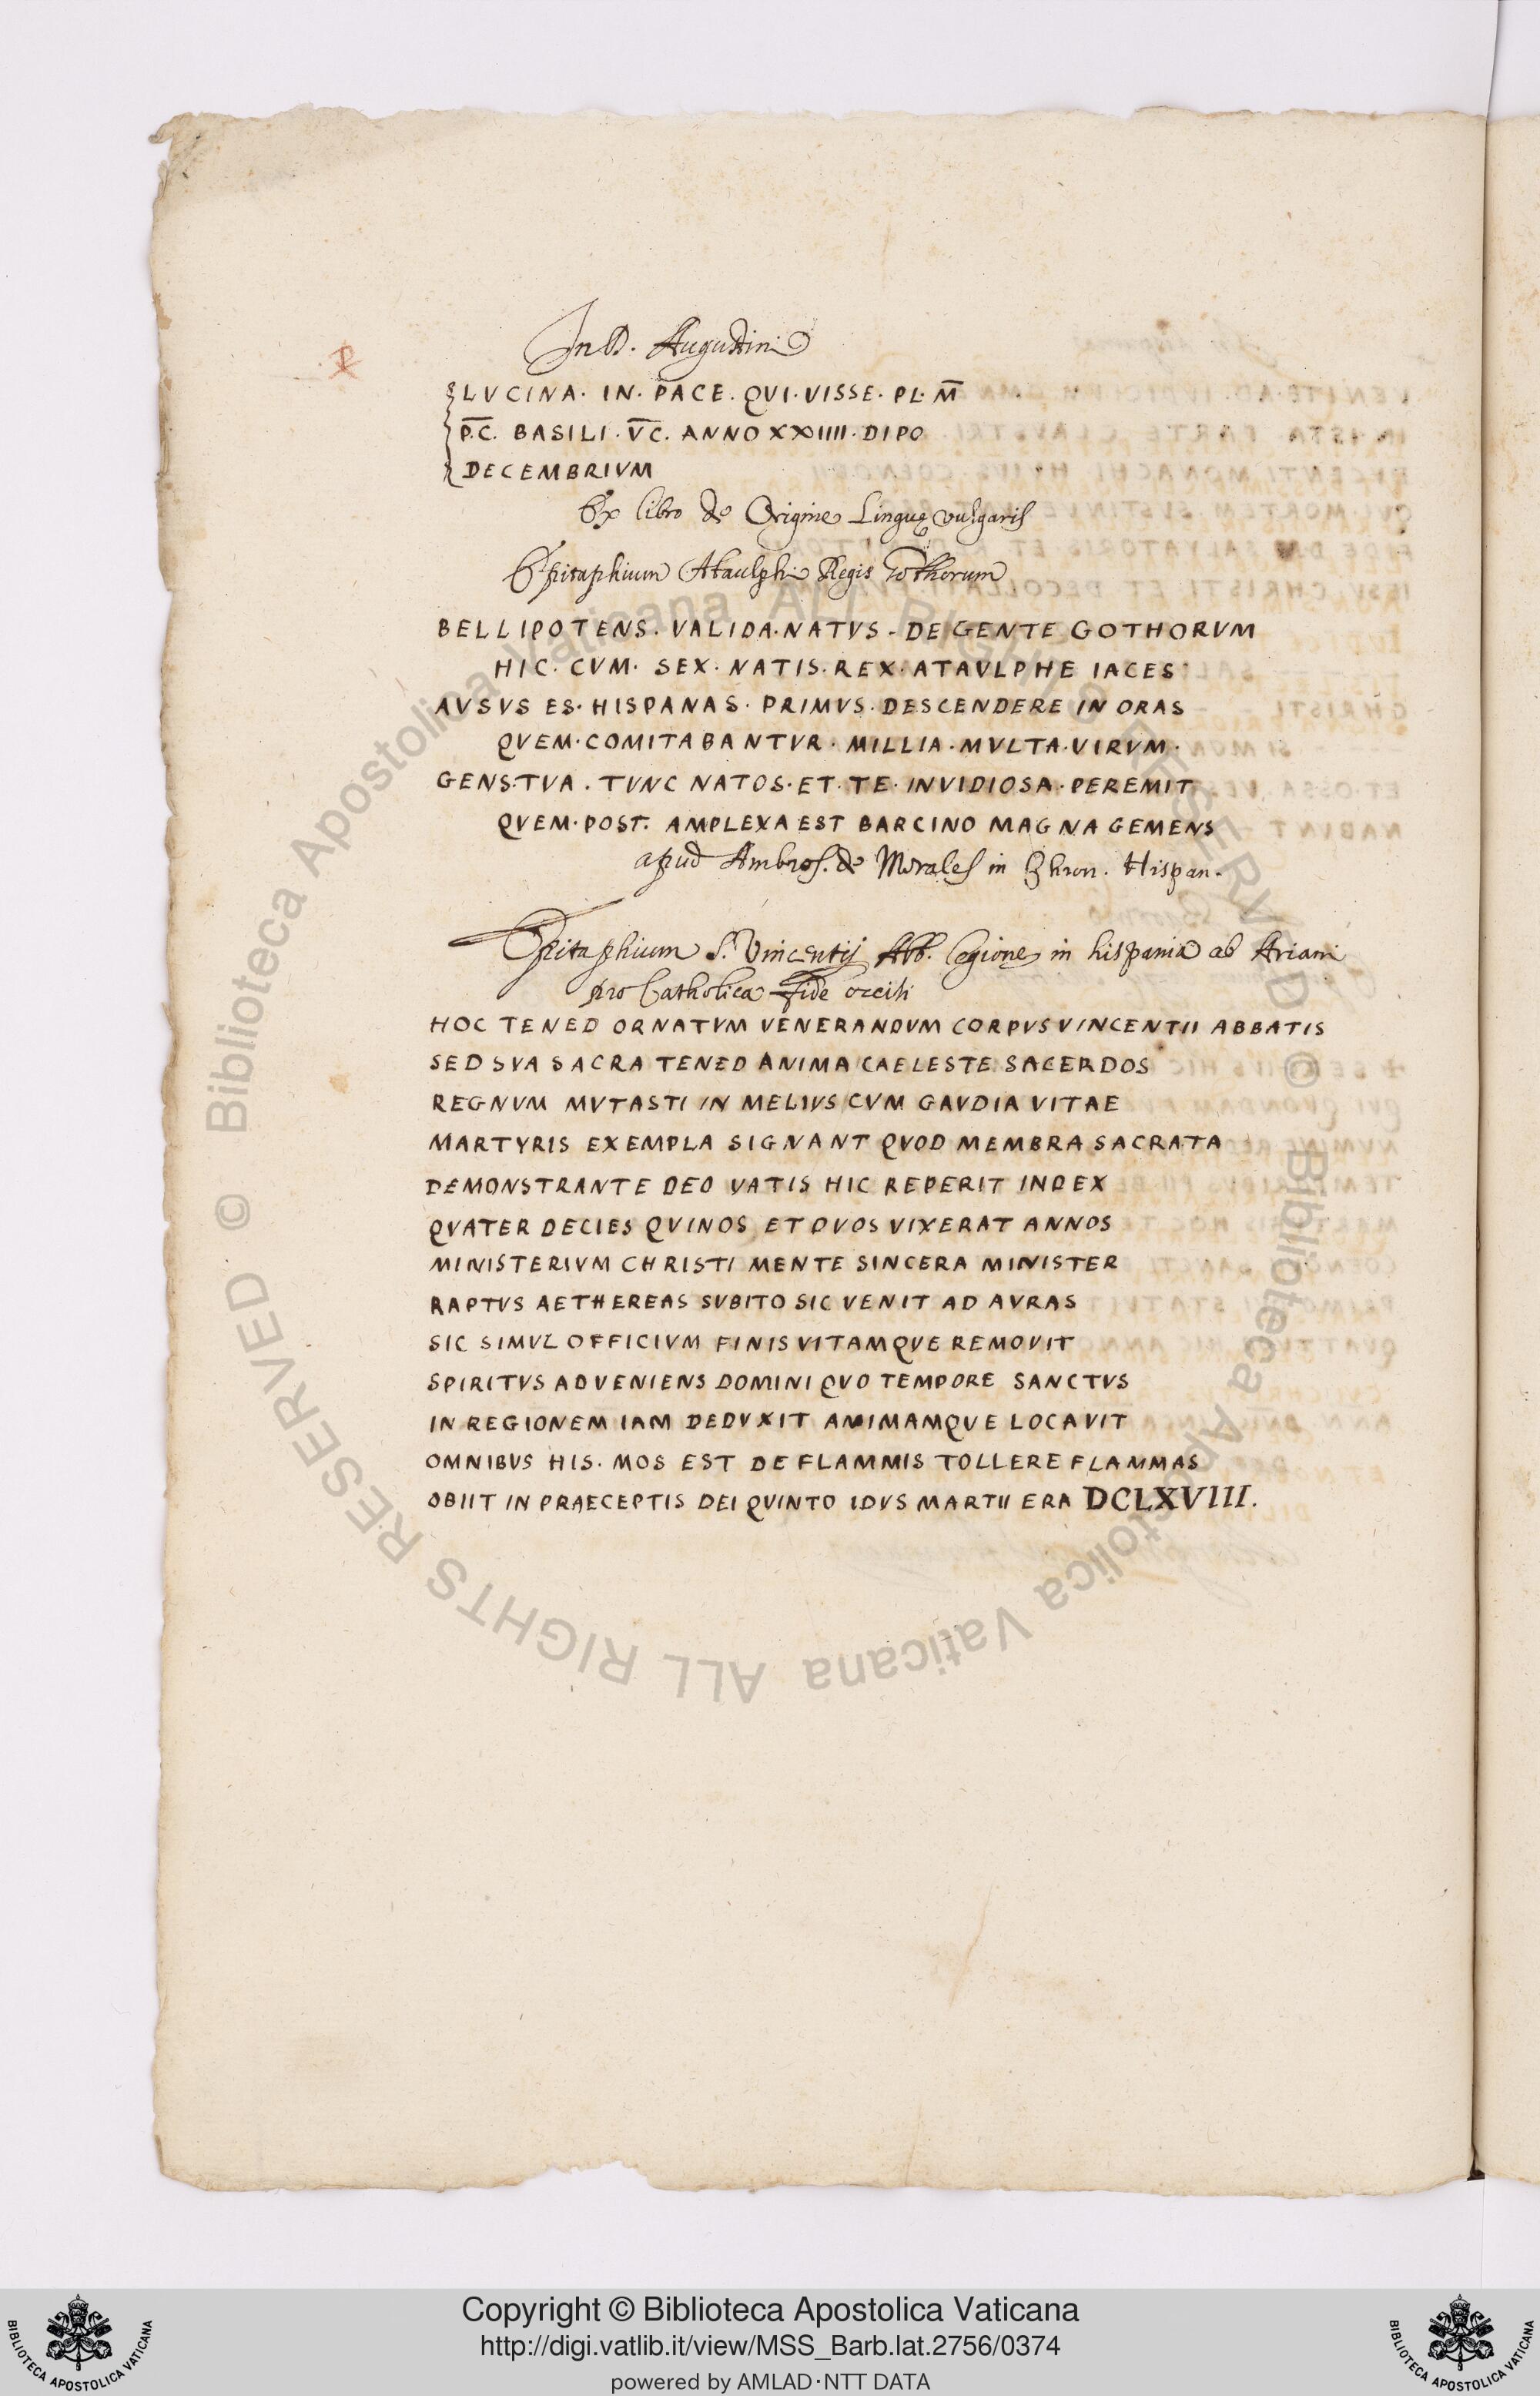 In D. Augustini
LVCINA. IN. PACE. QVI. VISSE. PL. M̅
P̅.C. BASILI. V̅C. ANNO XXIIII. DIPO
DECEMBRIVM
Ex libro de Origine Linguę vulgaris
Epitaphium Ataulphi Regis Gothorum
BELLIPOTENS. VALIDA. NATVS - DE GENTE GOTHORVM
HIC. CVM. SEX. NATIS. REX. ATAVLPHE IACES
AVSVS ES. HISPANAS. PRIMVS. DESCENDERE IN ORAS
QVEM. COMITABANTVR. MILLIA. MVLTA. VIRVM.
GENS.TVA. TVNC NATOS. ET. TE. INVIDIOSA. PEREMIT
QVEM. POST. AMPLEXA EST BARCINO MAGNA GEMENS
apud Ambros. de Morales in Chron. Hispan.
Epitaphium S. Vincentij Abb. legione in hispania ab Ariani
pro Catholica Fide occisi
HOC TENED ORNATVM VENERANDVM CORPVS VINCENTII ABBATIS
SED SVA SACRA TENED ANIMA CAELESTE SACERDOS
REGNVM MVTASTI IN MELIVS CVM GAVDIA VITAE
MARTYRIS EXEMPLA SIGNANT QVOD MEMBRA SACRATA
DEMONSTRANTE DEO VATIS HIC REPERIT INDEX
QVATER DECIES QVINOS ET DVOS VIXERAT ANNOS
MINISTERIVM CHRISTI MENTE SINCERA MINISTER
RAPTVS AETHEREAS SVBITO SIC VENIT AD AVRAS
SIC SIMVL OFFICIVM FINIS VITAMQVE REMOVIT
SPIRITVS ADVENIENS DOMINI QVO TEMPORE SANCTVS
IN REGIONEM IAM DEDVXIT ANIMAMQVE LOCAVIT
OMNIBVS HIS. MOS EST DE FLAMMIS TOLLERE FLAMMAS
OBIIT IN PRAECEPTIS DEI QVINTO IDVS MARTII ERA DCLXVIII.
© Biblioteca Apostolica Vaticana ALL RIGHTS RESERVED © Biblioteca Apostolica Vaticana ALL RIGHTS RESERVED
BIBLIOTECA APOSTOLICA VATICANA
Copyright © Biblioteca Apostolica Vaticana
http://digi.vatlib.it/view/MSS_Barb.lat.2756/0374
powered by AMLAD·NTT DATA
BIBLIOTECA APOSTOLICA VATICANA